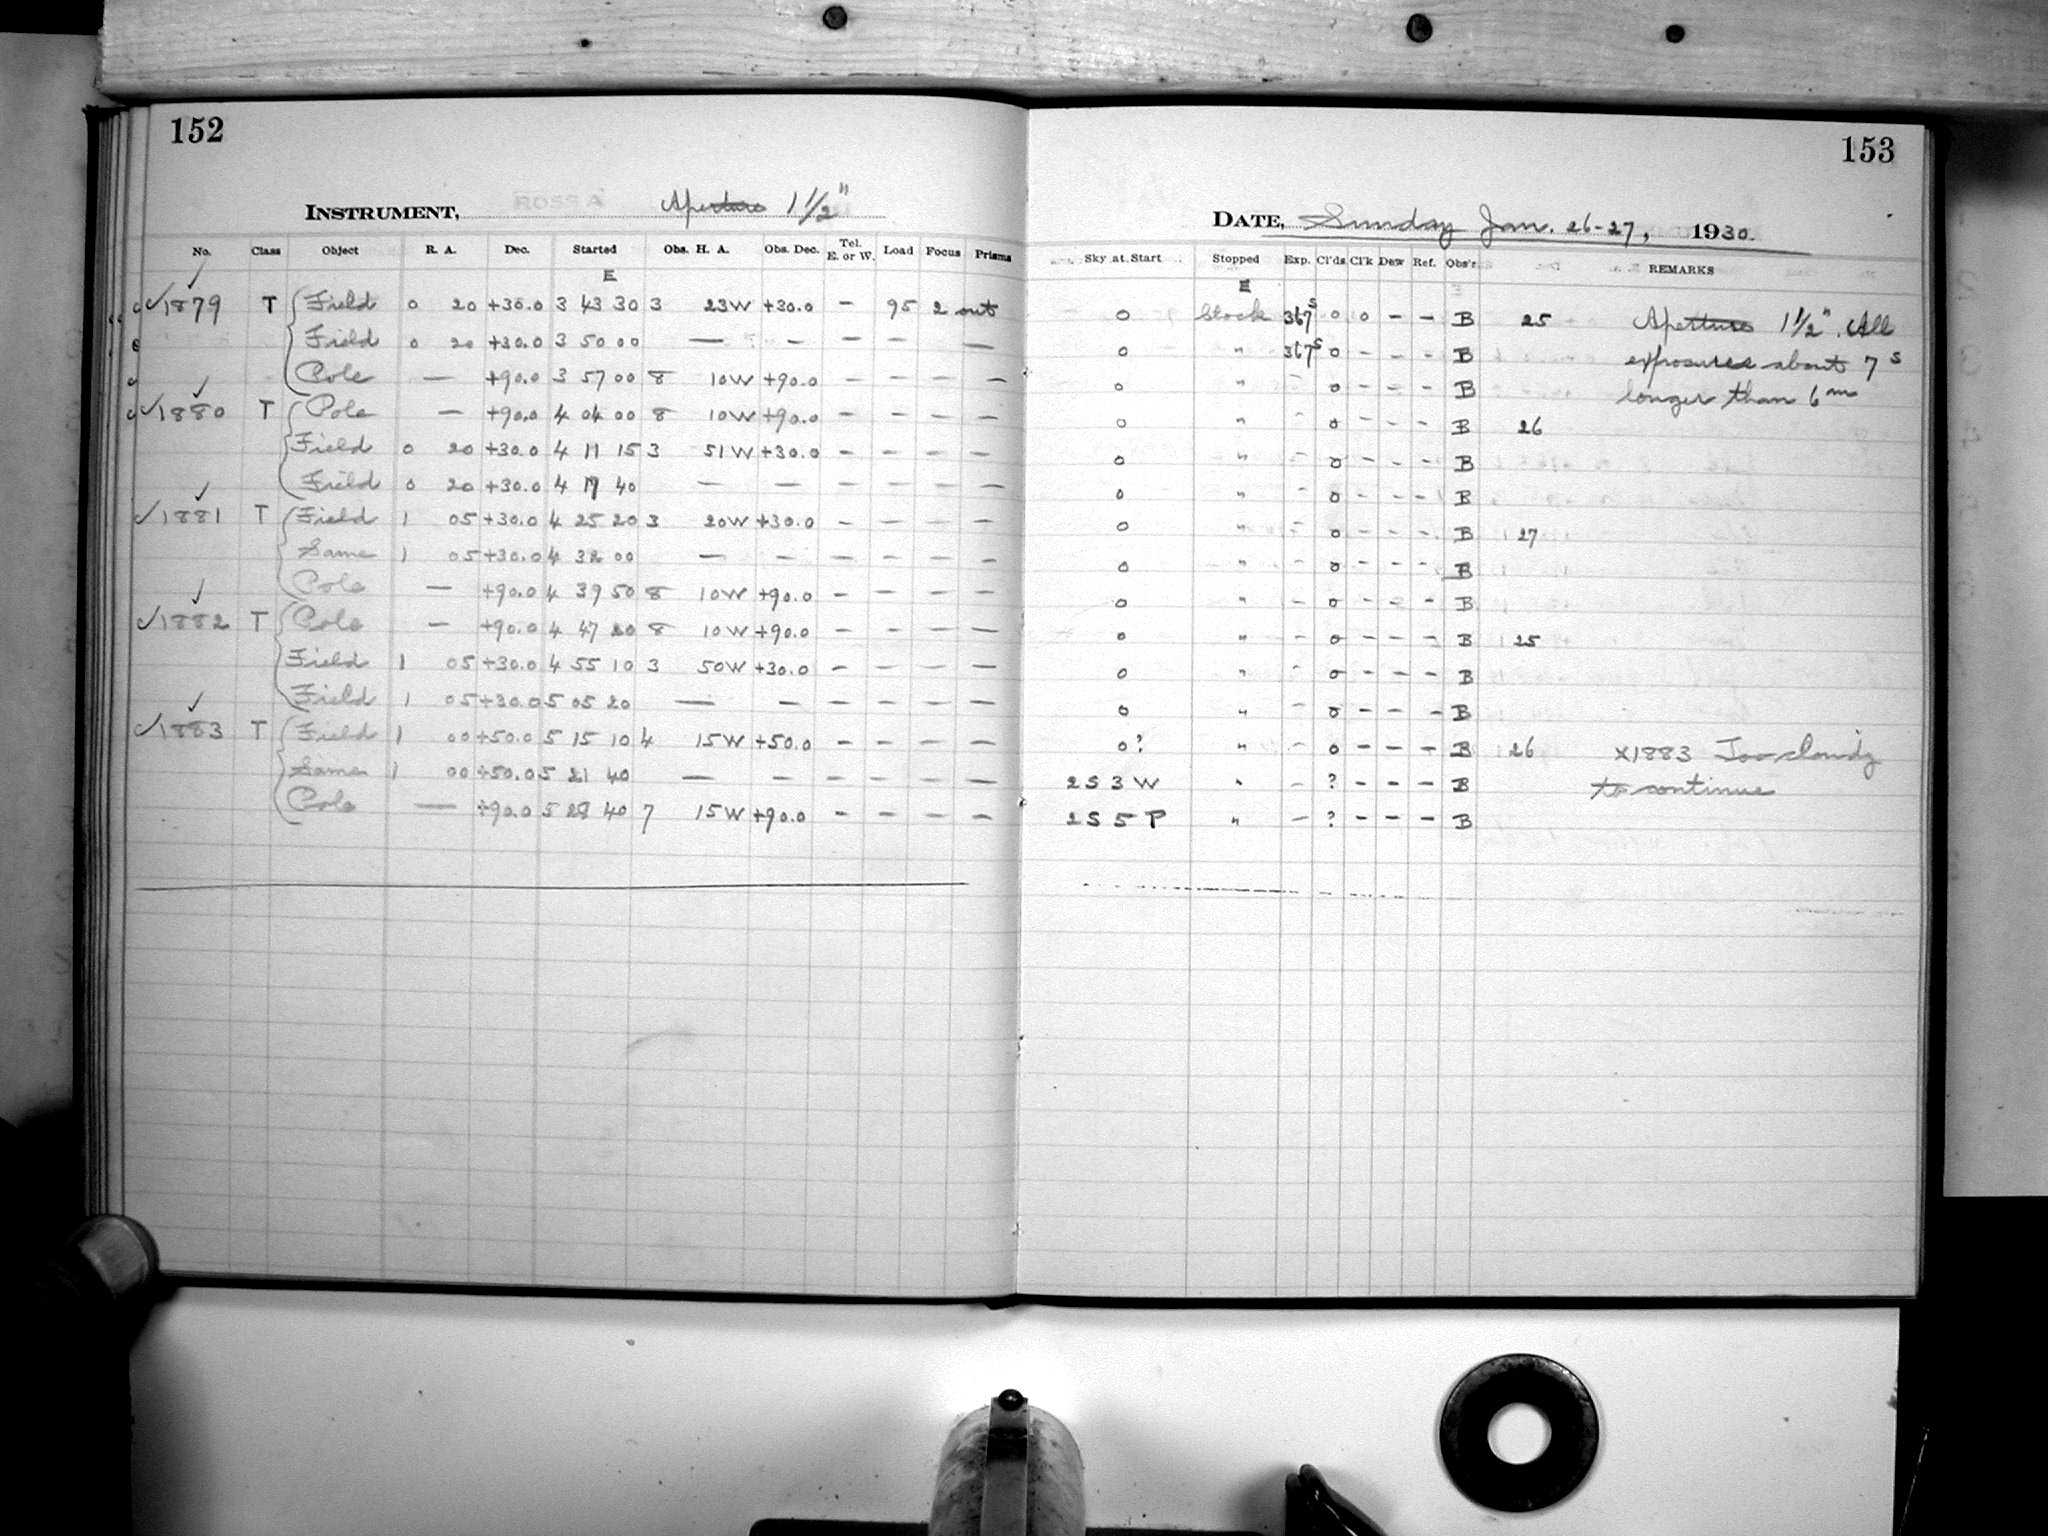 152
INSTRUMENT, ROSS A Aperture 1 1/2"
No. Class Object R. A. Dec. Started Obs. H. A. Obs. Dec. Tel. E. or W. Load Focus Prisms
E
✓1879 T Field 0 20 +30.0 3 43 30 3 23W +30.0 – 95 2 out
Field 0 20 +30.0 3 50 00 — – – – —
Pole — +90.0 3 57 00 8 10W +90.0 – – – –
✓1880 T Pole — +90.0 4 04 00 8 10W +90.0 – – – –
Field 0 20 +30.0 4 11 15 3 51W +30.0 – – – –
Field 0 20 +30.0 4 40 — — – – – —
✓1881 T Field 1 05 +30.0 4 25 20 3 20W +30.0 – – – –
Same 1 05 +30.0 4 32 00 — – – – – –
Pole — +90.0 4 39 50 8 10W +90.0 – – – –
✓1882 T Pole — +90.0 4 47 20 8 10W +90.0 – – – –
Field 1 05 +30.0 4 55 10 3 50W +30.0 – – – –
Field 1 05 +30.0 5 05 20 — – – – – –
✓1883 T Field 1 00 +50.0 5 15 10 4 15W +50.0 – – – –
Same 1 00 +50.0 5 21 40 — – – – – –
Pole — +90.0 5 28 40 7 15W +90.0 – – – –
153
DATE, Sunday Jan. 26-27, 1930.
Sky at Start Stopped Exp. Cl'ds Cl'k Dew Ref. Obs'r REMARKS
E
0 Clock 367s 0 0 – – B 25 Aperture 1 1/2". All
0 " 367s 0 – – – B exposures about 7s
0 " – 0 – – – B longer than 6m
0 " – 0 – – – B 26
0 " – 0 – – – B
0 " – 0 – – – B
0 " – 0 – – – B 27
0 " – 0 – – – B
0 " – 0 – – – B
0 " – 0 – – – B 25
0 " – 0 – – – B
0 " – 0 – – – B
0? " – 0 – – – B 26 x1883 Too cloudy
2S 3 W " – ? – – – B to continue
2S 5 P " – ? – – – B